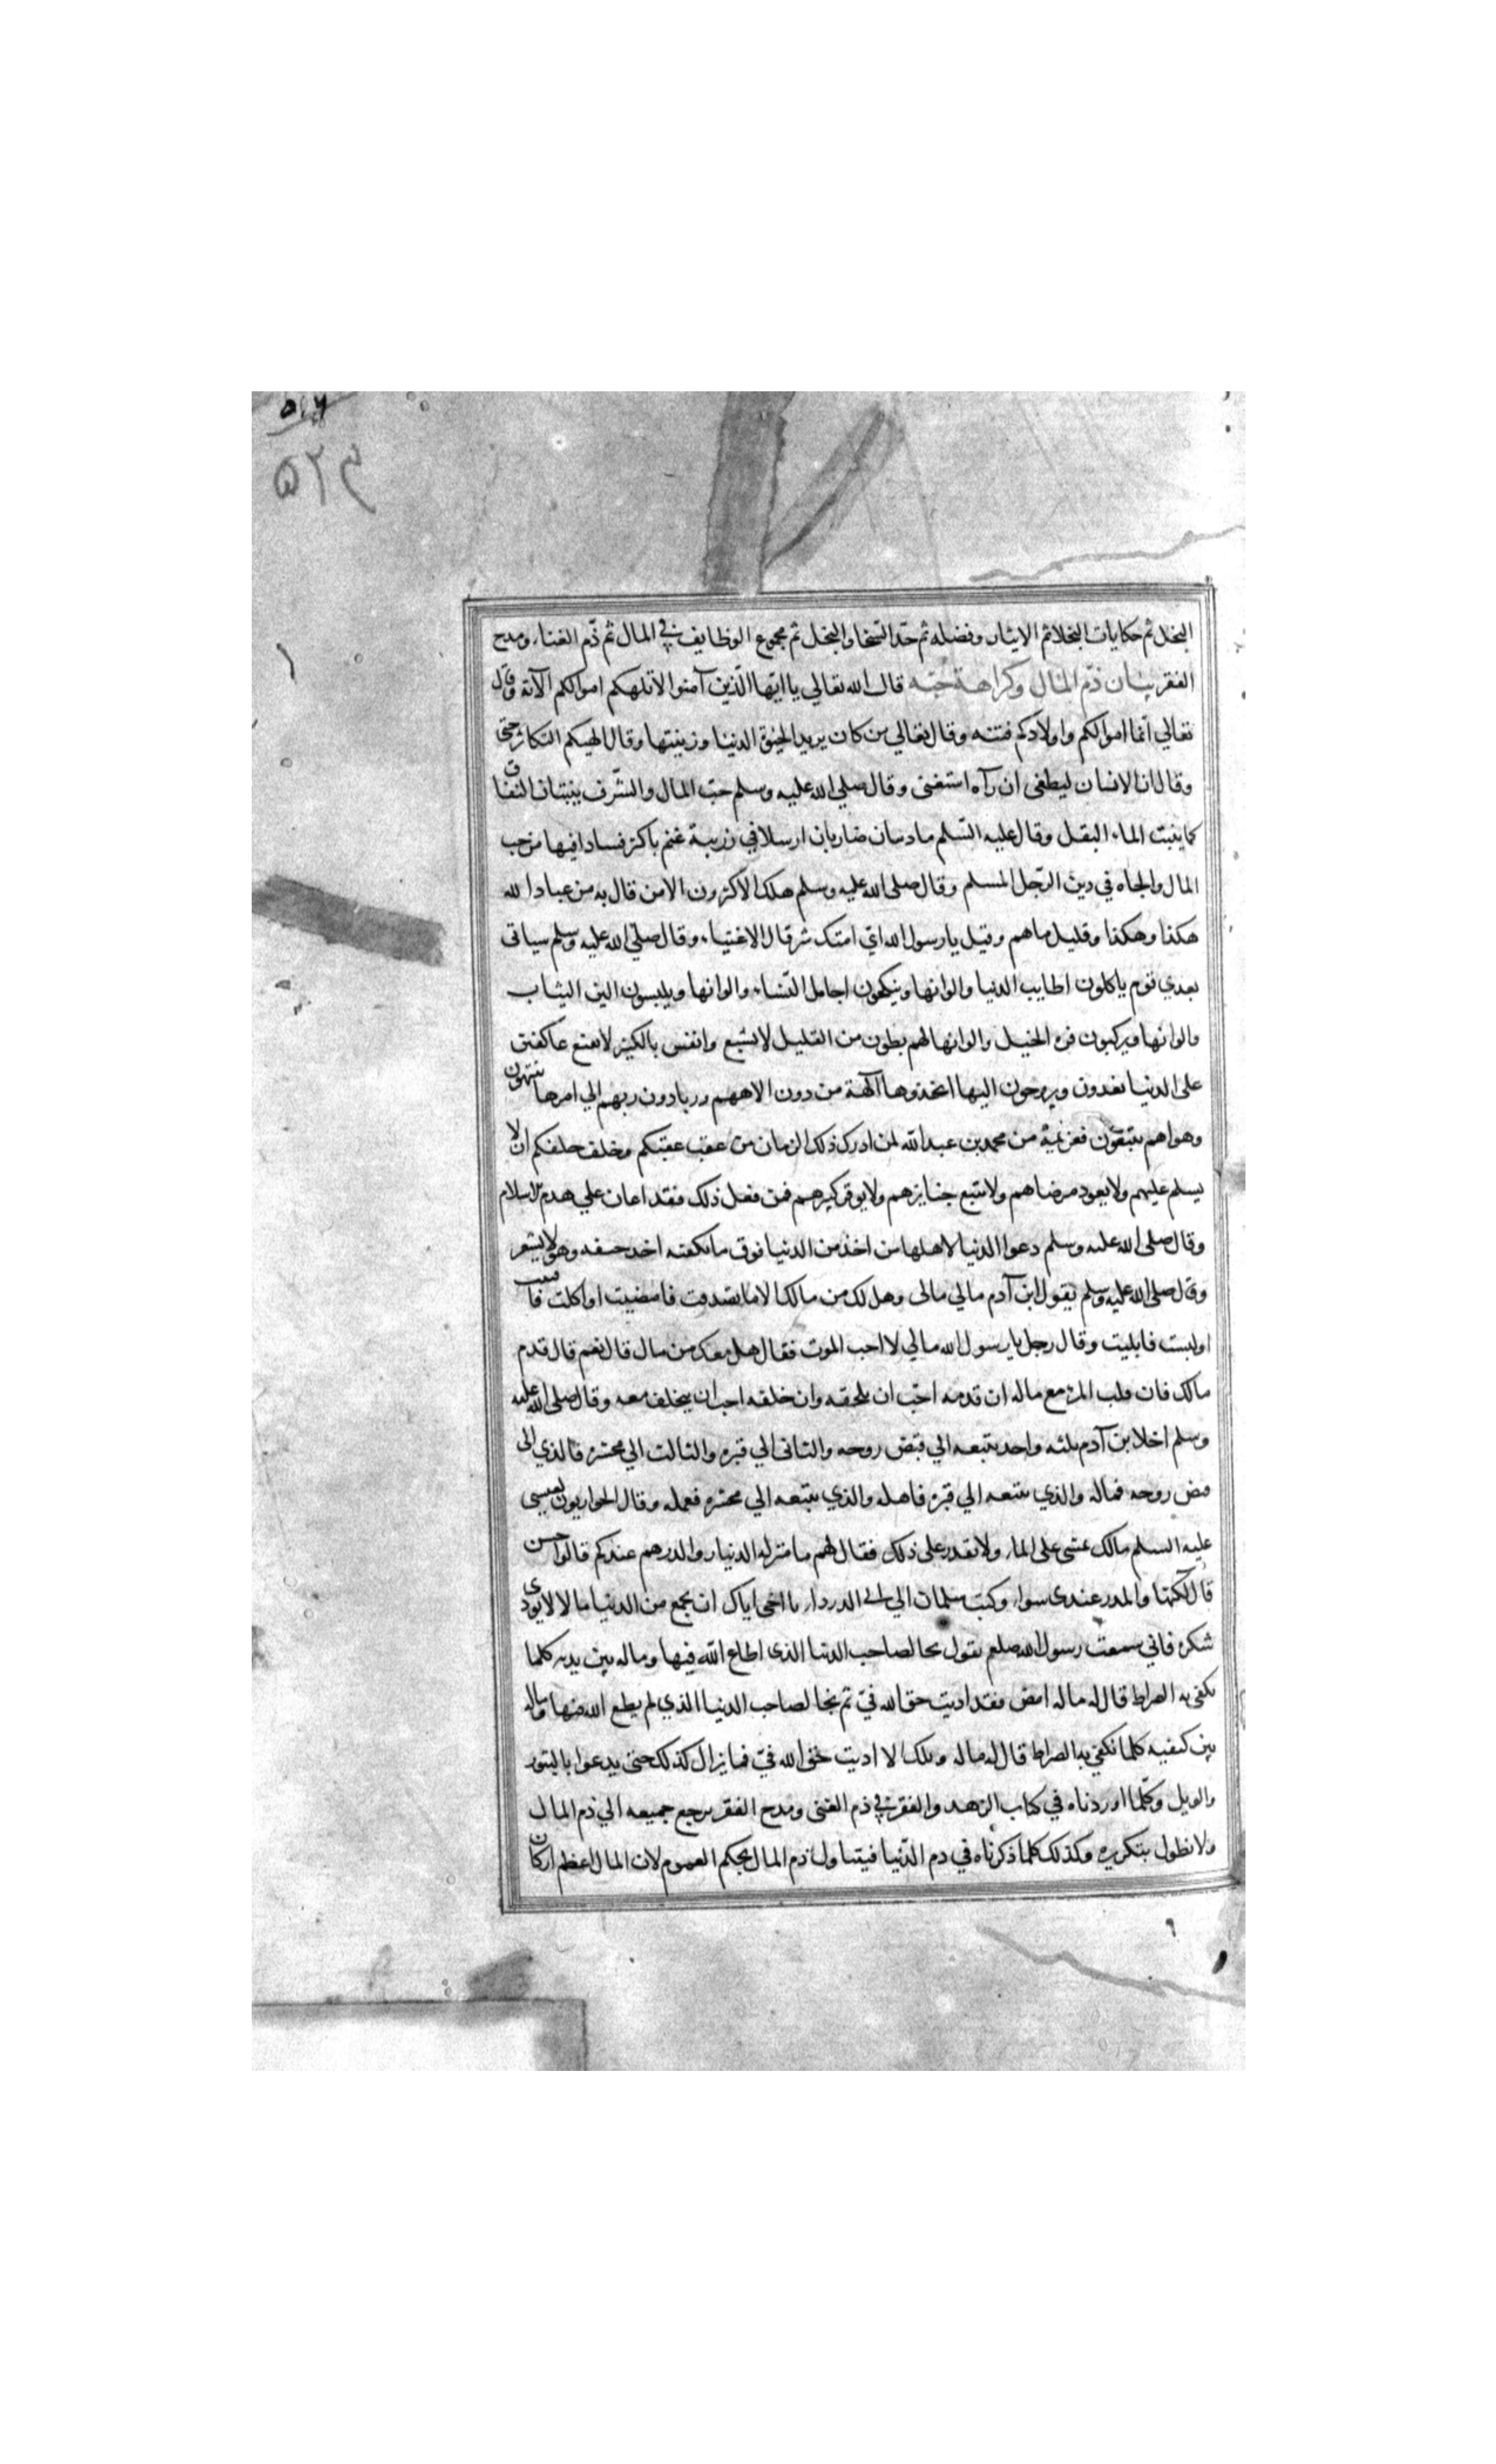 ۵۱۶
۵۲۴
البخل ثم حكايات البخلا ثم الايثار وفضله ثم حدّ السّخا والبخل ثم مجموع الوظايف في المال ثم ذّم الغناء ومدح
الفقر بيان ذّم المال وكراهة حبّه قال الله تعالي يا ايّها الّذين آمنوا لا تلهكم اموالكم الآية وقال
تعالي انّما اموالكم واولادكم فتنه وقال تعالي من كان يريد الحيوة الدنيا وزينتها وقال الهيكم التكاثر حتى
وقال ان الانسان ليطغى ان رآه استغنى وقال صلي الله عليه وسلم حبّ المال والشّرف ينبتان النفاق
كما ينبت الماء البقل وقال عليه السّلم ما دسان ضاريان ارسلا في زريبة غنم باكثر فسادا فيها من حب
المال والجاه في دين الرّجل المسلم وقال صلى الله عليه وسلم هلك الاكثرون الا من قال به من عباد الله
هكذا وهكذا وقليل ما هم وقيل يا رسول الله اىّ امتك شر قال الاغنياء وقال صلّى الله عليه وسلم سياتى
بعدي قوم ياكلون اطايب الدنيا والوانها وينكحون اجامل النّساء والوانها ويلبسون الين الثياب
والوانها ويركبون فره الخيل والوانها لهم بطون من القليل لا تشبع وانفس بالكثير لا تقنع عاكفين
على الدنيا يغدون ويروحون اليها اتخذوها آلهة من دون الاههم وربا دون ربهم الي امرها ينتهون
وهواهم يتبعون فعزيمة من محمد بن عبد الله لمن ادرك ذلك الزمان من عقب عقبكم وخلف خلفكم ان لا
يسلم عليهم ولا يعود مرضاهم ولا يتبع جنايزهم ولا يوقر كبيرهم فمن فعل ذلك فقد اعان علي هدم الاسلام
وقال صلى الله عليه وسلم دعوا الدنيا لاهلها من اخذ من الدنيا فوق ما يكفيه اخذ حتفه وهو لا يشعر
وقال صلى الله عليه وسلم يقول ابن آدم مالي مالى وهل لك من مالك الا ما تصدقت فامضيت او اكلت فا
او لبست فابليت وقال رجل يا رسول الله مالي لا احب الموت فقال هل معك من مال قال نعم قال قدم
مالك فان قلب المرء مع ماله ان قدمه احبّ ان يلحقه وان خلفه احب ان يتخلف معه وقال صلى الله عليه
وسلم اخلا بن آدم ثلثه واحد يتبعه الي قبض روحه والثانى الي قبره والثالث الي محشره فالذي الى
قبض روحه فماله والذي يتبعه الي قبره فاهله والذي يتبعه الي محشره فعمله وقال الحواريون لعيسى
عليه السلم مالك تمشى على الماء ولا نقدر على ذلك فقال لهم ما منزلة الدنيار والدرهم عندكم قالوا حسن
قال لكنها والمدر عندى سوا وكتب سلمان الي ابي الدرداء يا اخى اياك ان تجمع من الدنيا ما لا لا يودى
شكره فاني سمعت رسول الله صلعم يقول يجا لصاحب الدنيا الذى اطاع الله فيها وماله بين يديه كلما
تكفى به الصراط قال له ماله امض فقد اديت حق الله فيّ ثم يجا لصاحب الدنيا الذي لم يطع الله فيها وماله
بين كتفيه كلما تكفى به الصراط قال له ماله ويلك الا اديت حق الله فيّ فما يزال كذلك حتى يدعوا بالثبور
والويل وكلّما اوردناه في كتاب الزهد والفقر في ذم الغنى ومدح الفقر يرجع جميعه الي ذم المال
ولا نطول بتكريره وكذلك كلما ذكرناه في ذم الدّنيا فيتناول ذم المال بحكم العموم لان المال اعظم اركان